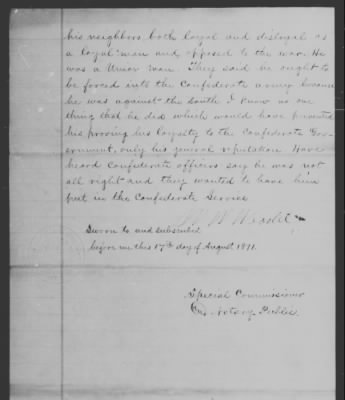 his neighbors both loyal and disloyal as
a loyal man and opposed to the war. He
was a Union man. They said he ought to
be forced into the Confederate army because
he was against the South I know no one
thing that he did which would have prevented
his proving his loyalty to the Confederate Gov-
ernment, only his general reputation. Have
heard Confederate officers say he was not
all right and they wanted to have him
put in the Confederate Service
Sworn to and subscribed
before me this 17th day of August 1871.
Special Commissioner
and Notary Public